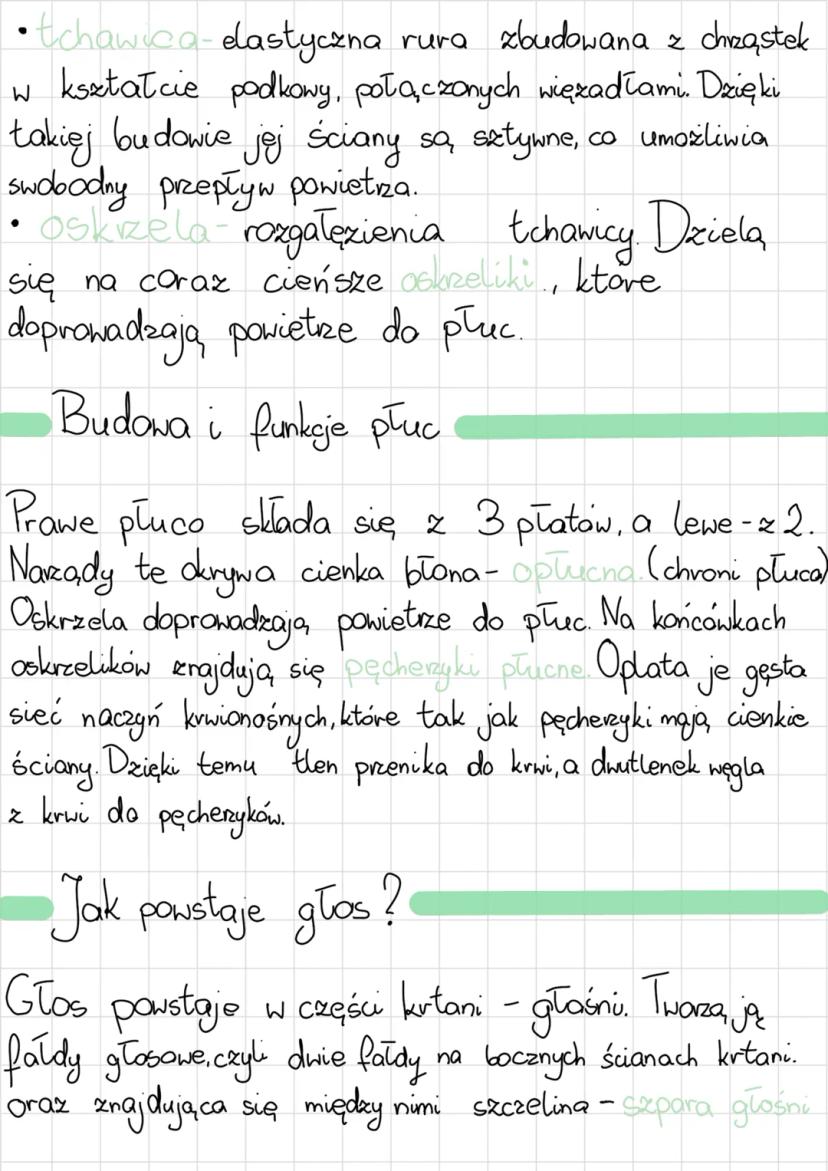 • tchawica - elastyczna rura zbudowana z chrząstek
w kształcie podkowy, połączonych więzadłami. Dzięki
takiej budowie jej ściany są sztywne, co umożliwia
swobodny przepływ powietrza.
• oskrzela - rozgałęzienia tchawicy. Dzielą
się na coraz cieńsze oskrzeliki., które
doprowadzają powietrze do płuc.
Budowa i funkcje płuc
Prawe płuco składa się z 3 płatów, a lewe - z 2.
Narządy te okrywa cienka błona - opłucna. (chroni płuca)
Oskrzela doprowadzają powietrze do płuc. Na końcówkach
oskrzelików znajdują się pęcherzyki płucne. Oplata je gęsta
sieć naczyń krwionośnych, które tak jak pęcherzyki mają cienkie
ściany. Dzięki temu tlen przenika do krwi, a dwutlenek węgla
z krwi do pęcherzyków.
Jak powstaje głos?
Głos powstaje w części krtani - głośni. Tworzą ją
fałdy głosowe, czyli dwie fałdy na bocznych ścianach krtani.
oraz znajdująca się między nimi szczelina - szpara głośni